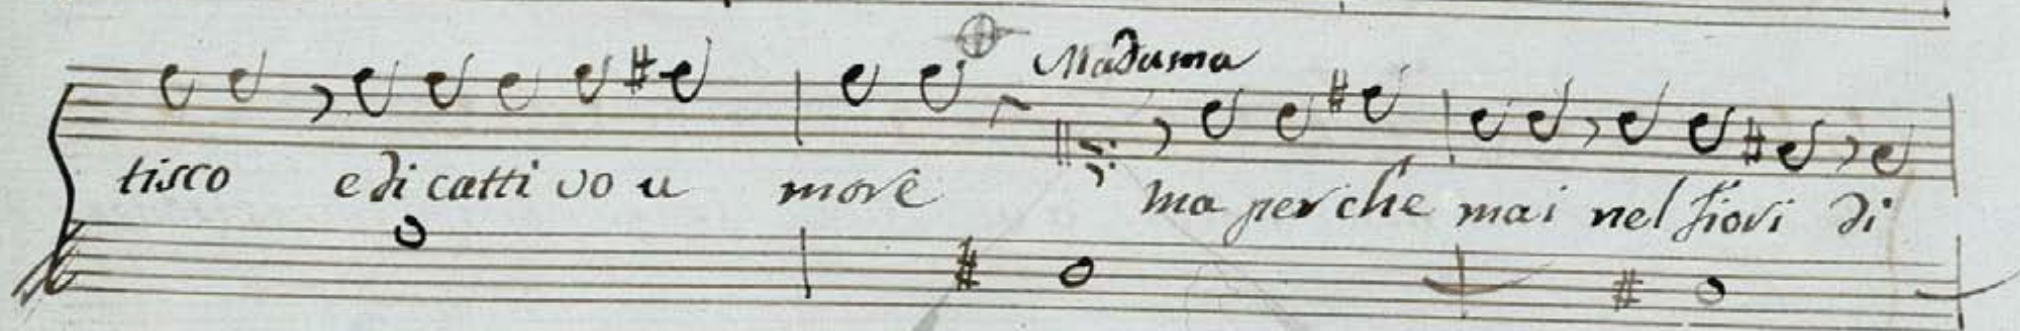 Madama
tisco e di catti vo u more ma perche mai nel fiori di